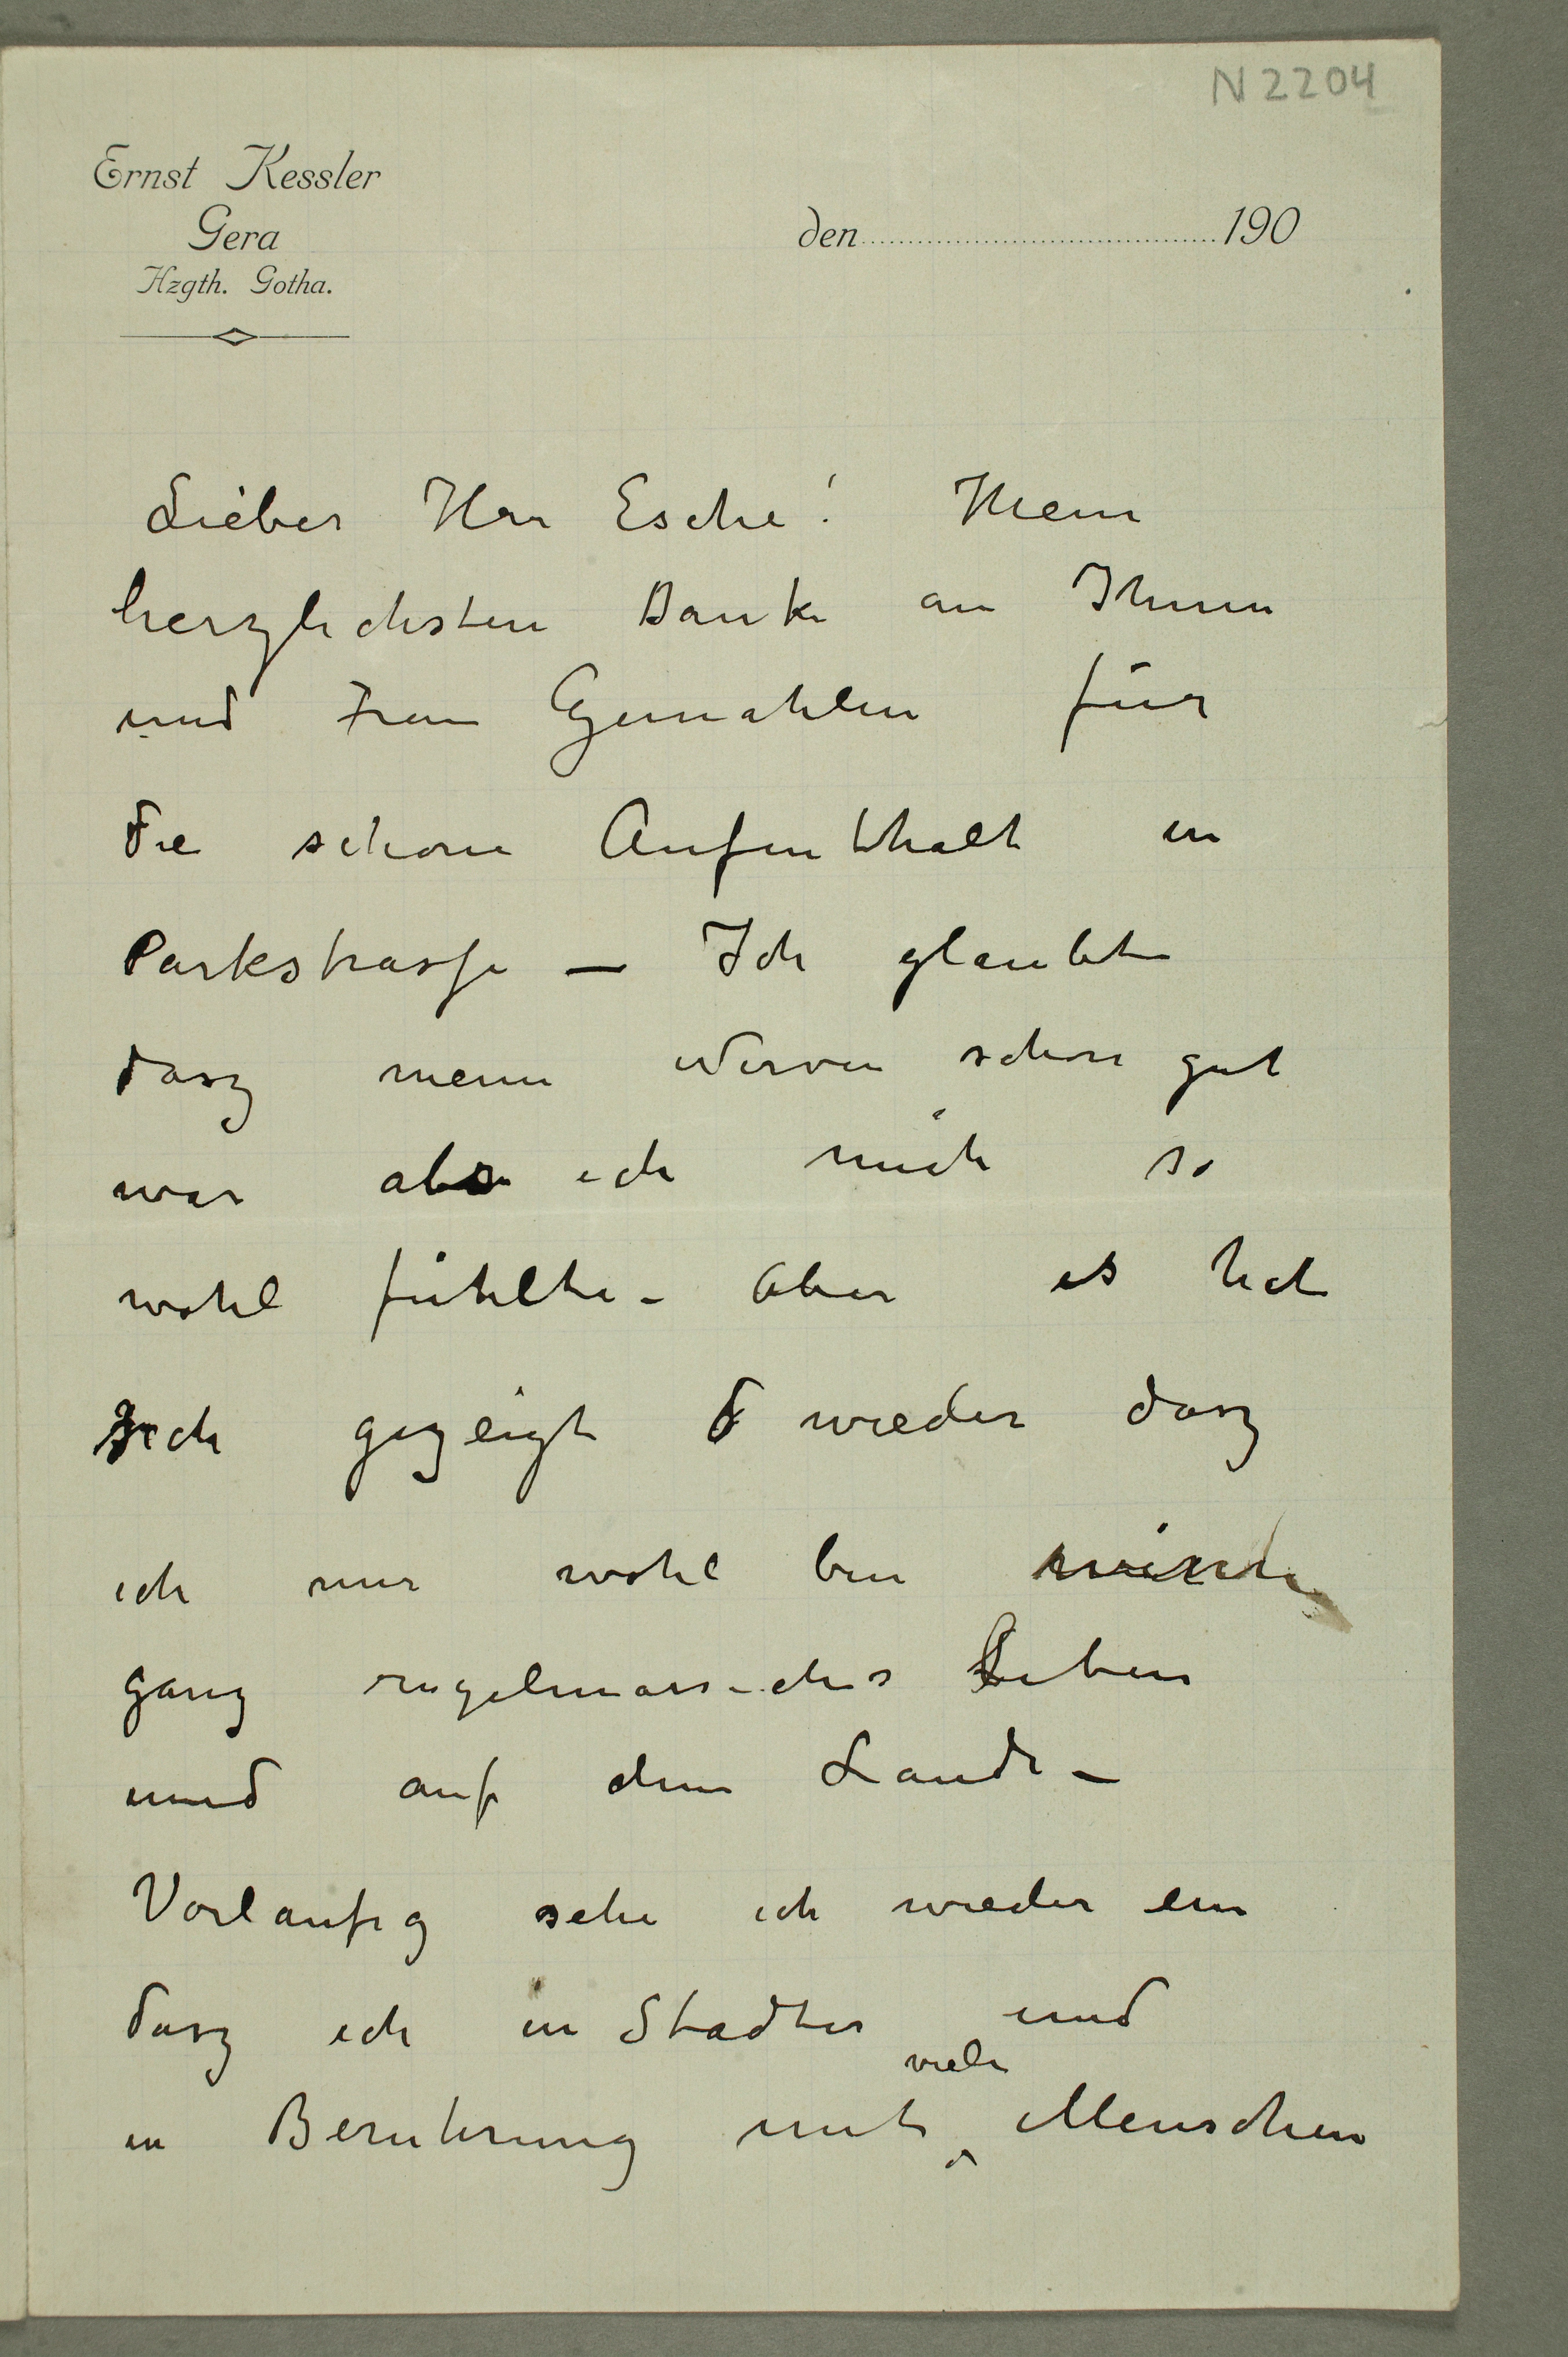 N 2204
Ernst Kessler
Gera
Hzgth. Gotha.
den 190
Lieber Herr Esche! Mein
herzlichsten Danke an Ihnen
und Frau Gemahlin für
die schone Aufenthalt in
Parkstrasse — Ich glaubte
dasz meine Nerven schon gut
war als ich mich so
wohl fühlte – Aber es hat
sich gezeigt wieder dasz
ich nur wohl bin
ganz regelmassiches Leben
und auf dem Lande –
Vorlaufig sehe ich wieder ein
dasz ich in Städter und
viele
in Beruhrung mit Menschen